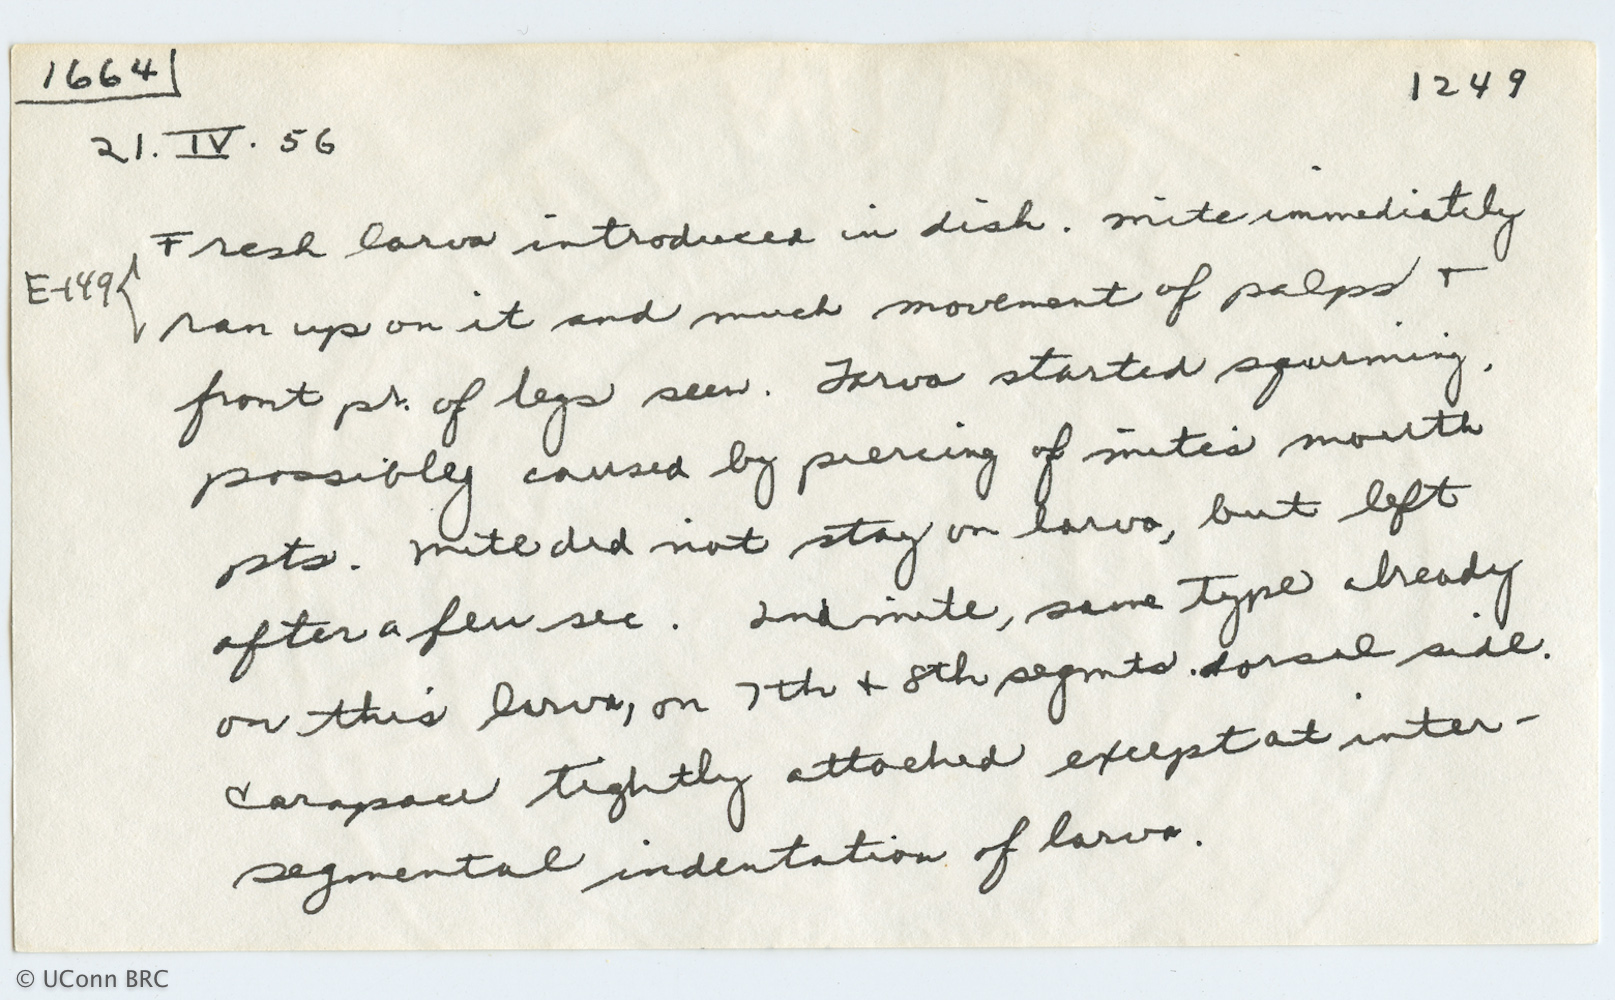 1664
1249
21. IV. 56
E-149
Fresh larva introduced in dish. Mite immediately
ran up on it and much movement of palps +
front pr. of legs seen. Larva started squirming,
possibly caused by piercing of mite's mouth
pts. Mite did not stay on larva, but left
after a few sec. 2nd mite, same type already
on this larva, on 7th + 8th segmts. dorsal side.
Carapace tightly attached except at inter-
segmental indentation of larva.
© UConn BRC